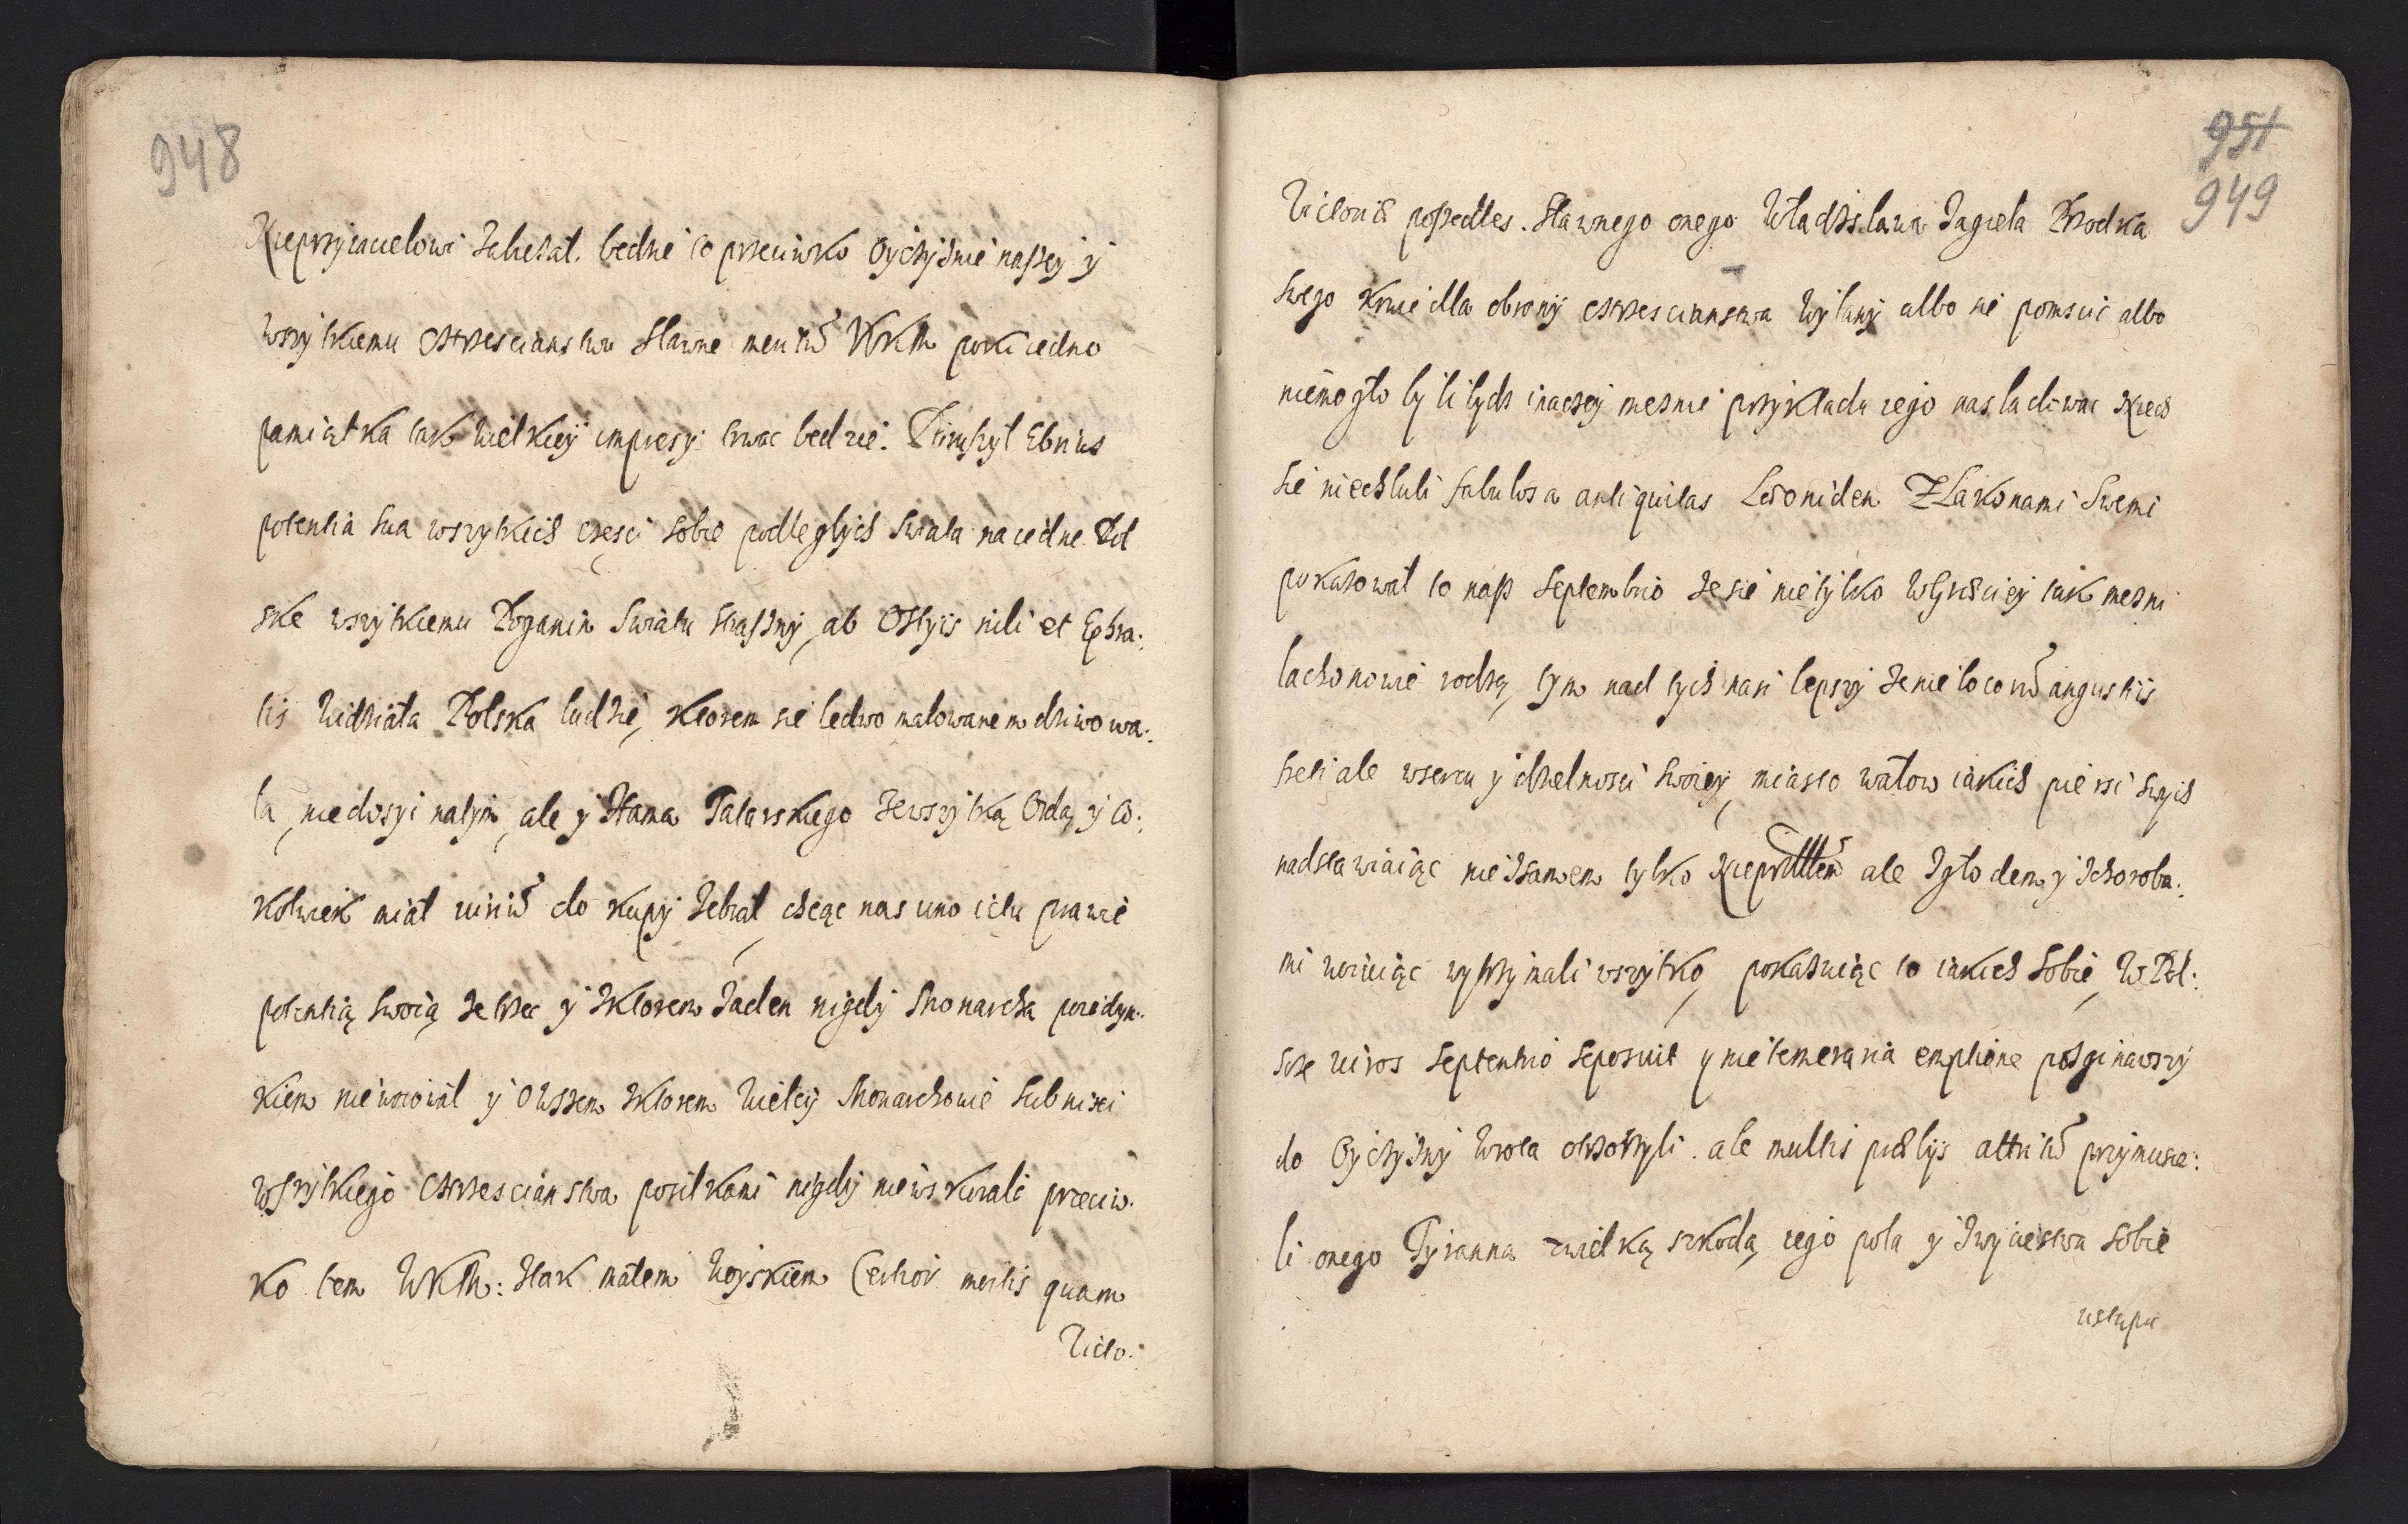 948
Nieprzyiacielowi zabieżał. bedzie to przeciwko Oyczyznie naszey y
wszytkiemu Chrzescianstwu sławne meritū WKM poki iedno
pamiątka tak wielkiey impresy trwac bedzie. Poruszył Ebrius
potentia sua wszytkich częsci sobie podległych swiata na iedne Pol
skę wszytkiemu Poganin swiatu straszny, ab Ostijs nili et Ephra:
tis widziała Polska ludzie, ktorem sie ledwo malowanem dziwowa:
ła, niedosyć natym, ale y Hama Tatarskiego zewszytką Ordą y co:
kolwiek miał viriū do kupy zebrał, chcąc nas uno ictu prawie
potentią swoią zetrzec y zktorem żaden nigdy Monarcha poiedyn:
kiem nie woiował y owszem zktorem wielcy Monarchowie submixi
wszytkiego Chrzescianstwa posiłkami nigdy niewskurali przeciw:
ko tem WKM: ztak małem woyskiem (certior mortis quam
Victo:
951
949
Victoriæ poszedłes. Sławnego onego Władzisława Jagieła Przodka
swego krwie dla obrony Chrzescianstwa wylany albo sie pomscic albo
niemogło ly li tych inaczey mężnie przykładu iego nasladować Niech
sie niechlubi fabulosa antiquitas Leoniden Z Lakonami Swemi
pokazował to nasz Septembrio że sie nietylko WGreciey tak mężni
lachonowie rodzą, tym nad tych nasi lepszy że nie locorū angustiis
strzeli ale wsercu y dzielnosci swoiey, miasto wałow iakich piersi swych
nadstawiaiąc nie zsamem tylko Nieprzyi̯lem ale zgłodem y zchoroba:
mi woiuiąc wytrzymali wszytko, pokazuiąc to iakich sobie, WPol:
szcze viros Septentrio seposuit y nie temeraria emptione posginawszy
do Oyczyzny wrota otworzyli. ale multis prælijs attritū przymusie:
li onego Tyranna zwielką szkodą iego pola y zwycięstwa sobie
ustępu